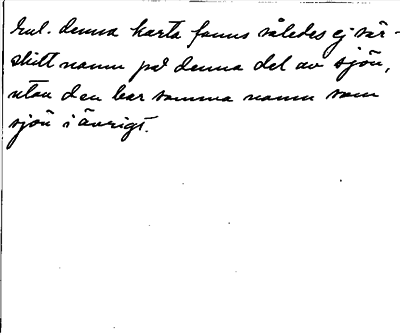 Enl. denna karta fanns således ej sär-
skilt namn på denna del av sjön,
utan den bar samma namn som
sjön i övrigt.